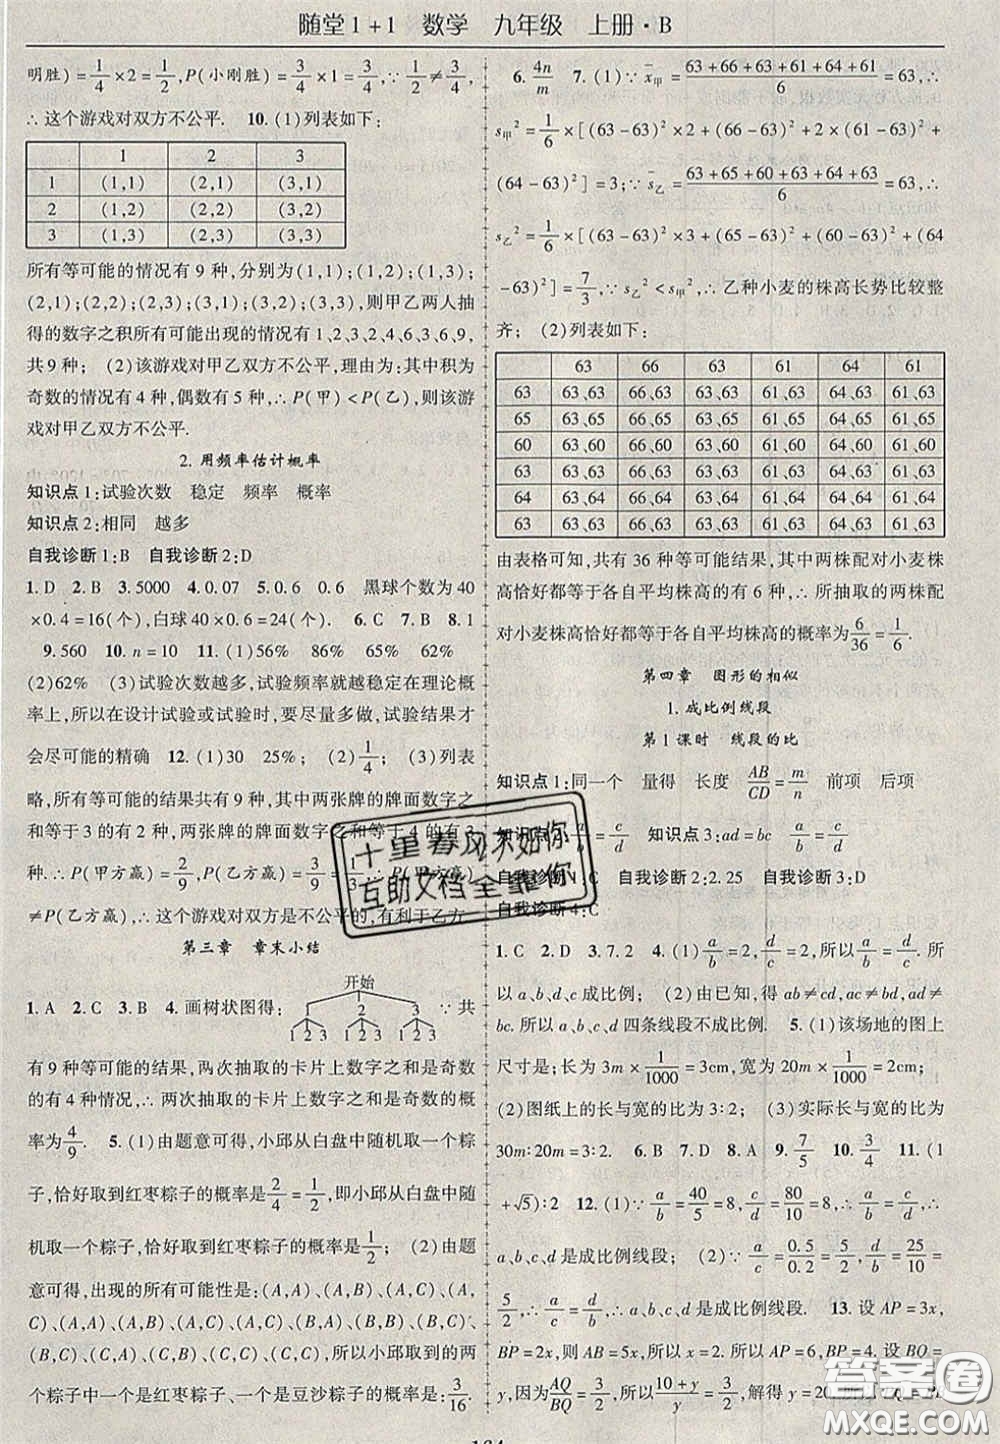 随堂1+1 数学 九年级 上册·B
明胜)=1/4×2=1/2,P(小刚胜)=3/4×1=3/4,∵1/2≠3/4,
∴这个游戏对双方不公平. 10. (1)列表如下:
1 2 3
1 (1,1) (2,1) (3,1)
2 (1,2) (2,2) (3,2)
3 (1,3) (2,3) (3,3)
所有等可能的情况有9种,分别为(1,1);(1,2);(1,3);
(2,1);(2,2);(2,3);(3,1);(3,2);(3,3),则甲乙两人抽
得的数字之积所有可能出现的情况有1,2,3,2,4,6,3,6,9,
共9种; (2)该游戏对甲乙双方不公平.理由为:其中积为
奇数的情况有4种,偶数有5种,∴P(甲)<P(乙),则该游
戏对甲乙双方不公平.
2. 用频率估计概率
知识点1:试验次数 稳定 频率 概率
知识点2:相同 越多
自我诊断1:B 自我诊断2:D
1. D 2. B 3. 5000 4. 0.07 5. 0.6 0.6 黑球个数为40
×0.4=16(个),白球40×0.6=24(个). 6. C 7. B 8. 1
9. 560 10. n=10 11. (1)56% 86% 63% 62%
(2)62% (3)试验次数越多,试验频率就越稳定在理论概
率上,所以在设计试验或试验时,要尽量多做,试验结果才
会尽可能的精确 12. (1)30 25%; (2)1/4; (3)列表
略,所有等可能的结果共有9种,其中两张牌的牌面数字之
和等于3的有2种,两张牌的牌面数字之和等于4的有3
种.∴P(甲方赢)=2/9,P(乙方赢)=3/9=1/3.∴P(甲方赢)
≠P(乙方赢)∴这个游戏对双方是不公平的,有利于乙方
第三章 章末小结
1. A 2. C 3. B 4. 画树状图得: ∵共
开始
1 2 3
1 2 3 1 2 3 1 2 3
有9种等可能的结果,两次抽取的卡片上数字之和是奇数
的有4种情况,∴两次抽取的卡片上数字之和是奇数的概
率为4/9. 5. (1)由题意可得,小邱从白盘中随机取一个粽
子,恰好取到红枣粽子的概率是2/4=1/2,即小邱从白盘中随
机取一个粽子,恰好取到红枣粽子的概率是1/2; (2)由题
意可得,出现的所有可能性是:(A,A)、(A,B)、(A,C)、(A,
C)、(A,A)、(A,B)、(A,C)、(A,C)、(B,A)、(B,B)、(B,C)、
(B,C)、(C,A)、(C,B)、(C,C)、(C,C),所以小邱取到的两
个粽子中一个是红枣粽子、一个是豆沙粽子的概率是:3/16.
6. 4n/m 7. (1)∵x̄甲=(63+66+63+61+64+61)/6=63,∴
s甲²=1/6×[(63-63)²×2+(66-63)²+2×(61-63)²+
(64-63)²]=3;∵s̄乙=(63+65+60+63+64+63)/6=63,∴
s乙²=1/6×[(63-63)²×3+(65-63)²+(60-63)²+(64
-63)²]=7/3,∵s乙²<s甲²,∴乙种小麦的株高长势比较整
齐; (2)列表如下:
63 66 63 61 64 61
63 63、63 66、63 63、63 61、63 64、63 61、63
65 63、65 66、65 63、65 61、65 64、65 61、65
60 63、60 66、60 63、60 61、60 64、60 61、60
63 63、63 66、63 63、63 61、63 64、63 61、63
64 63、64 66、64 63、64 61、64 64、64 61、64
63 63、63 66、63 63、63 61、63 64、63 61、63
由表格可知,共有36种等可能结果,其中两株配对小麦株
高恰好都等于各自平均株高的有6种,∴所抽取的两株配
对小麦株高恰好都等于各自平均株高的概率为6/36=1/6.
第四章 图形的相似
1. 成比例线段
第1课时 线段的比
知识点1:同一个 量得 长度 AB/CD=m/n 前项 后项
知识点2:a/b=c/d 知识点3:ad=bc a/b=c/d
自我诊断1:C 自我诊断2:2.25 自我诊断3:D
自我诊断4:C
1. C 2. D 3. 7.2 4. (1)a/b=2,c/d=2,所以a/b=c/d.所
以a、b、c、d成比例; (2)由已知,得ab≠cd,ac≠bd,ad≠
bc.所以a、b、c、d四条线段不成比例. 5. (1)该场地的图上
尺寸是:长为3m×1/1000=3cm,宽度为20m×1/1000=2cm;
(2)图纸上的长与宽的比为3:2; (3)实际长与宽的比为
30m:20m=3:2. 6. B 7. D 8. A 9. 7/5 10. 3/4 11. (1
+√5):2 12. (1)∵a/b=40/5=8,c/d=80/10=8,∴a/b=c/d,∴
a、b、c、d是成比例线段; (2)∵a/c=0.5/0.2=5/2,b/d=25/10=
5/2,∴a/c=b/d,∴a、b、c、d是成比例线段. 13. 设AP=3x,
BP=2x,则5x=10.所以x=2.所以AP=6,BP=4.设BQ=
y,因为AQ/BQ=3/2,所以(10+y)/y=3/2,解得y=20.
十里春风不如你
互助文档全靠你
答案圈
MXQE.COM